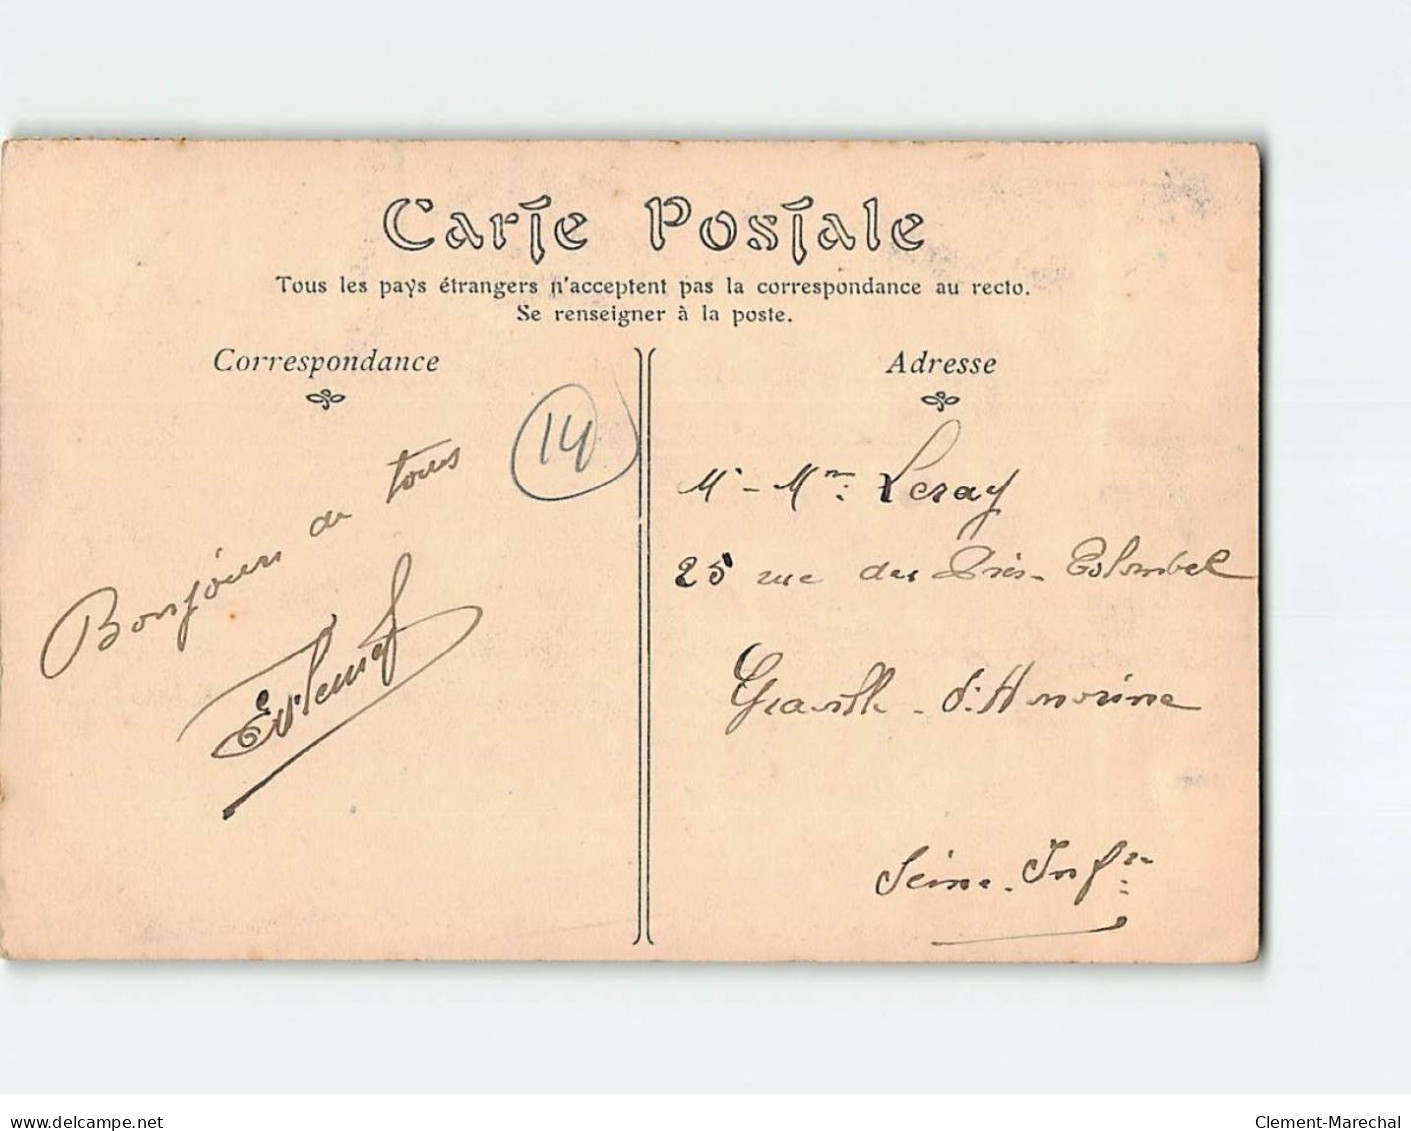 Carte Postale
Tous les pays étrangers n'acceptent pas la correspondance au recto.
Se renseigner à la poste.
Correspondance
Adresse
14
Bonjour de tous
Mr - Mme Leray
25 rue des Prés-Colombel
Graville - St Honorine
Seine-Infre
www.delcampe.net
Clement-Marechal